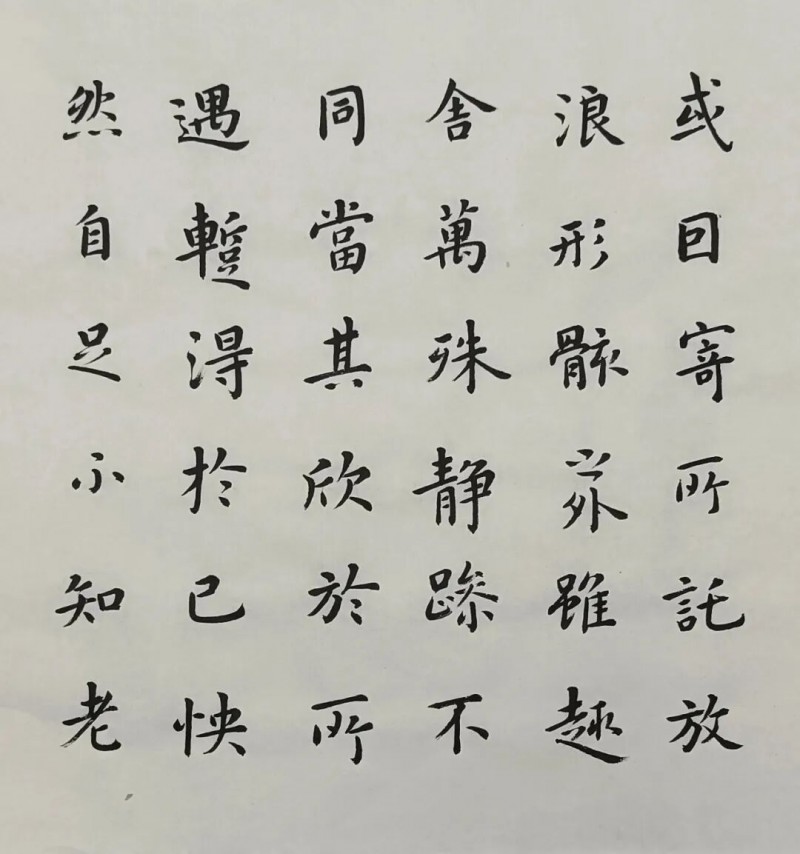 或回寄所託放
浪形骸之外雖趣
舍萬殊静躁不
同當其欣於所
遇蹔得於己怏
然自足不知老